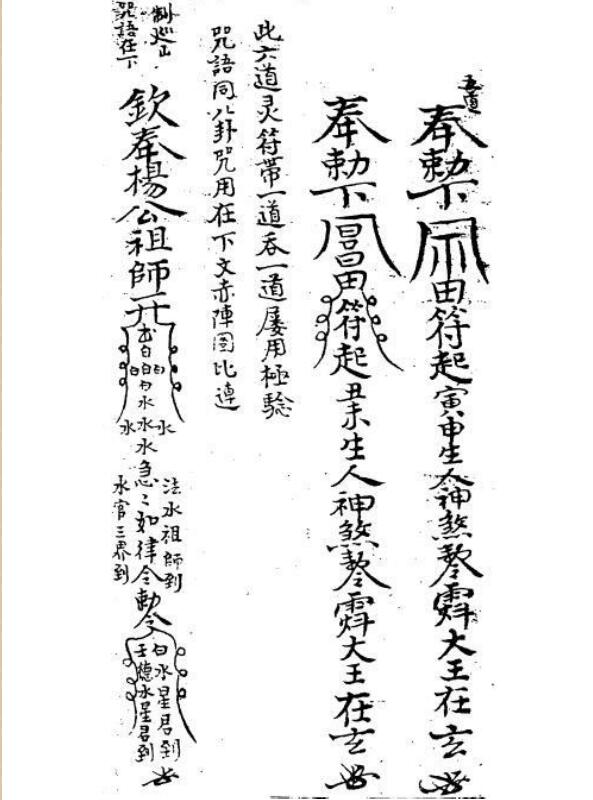 五道
奉勅下田符起寅申生人神煞大王在玄
奉勅下昌田符起丑未生人神煞大王在玄
此六道灵符帶一道吞一道屡用極騐
咒語同八卦咒用在下文赤陣圖比連
制巡山
咒語在下
欽奉楊公祖師
水水水水
急々如律令勅令
法水祖師到
水官三界到
白水星君到
壬德水星君到